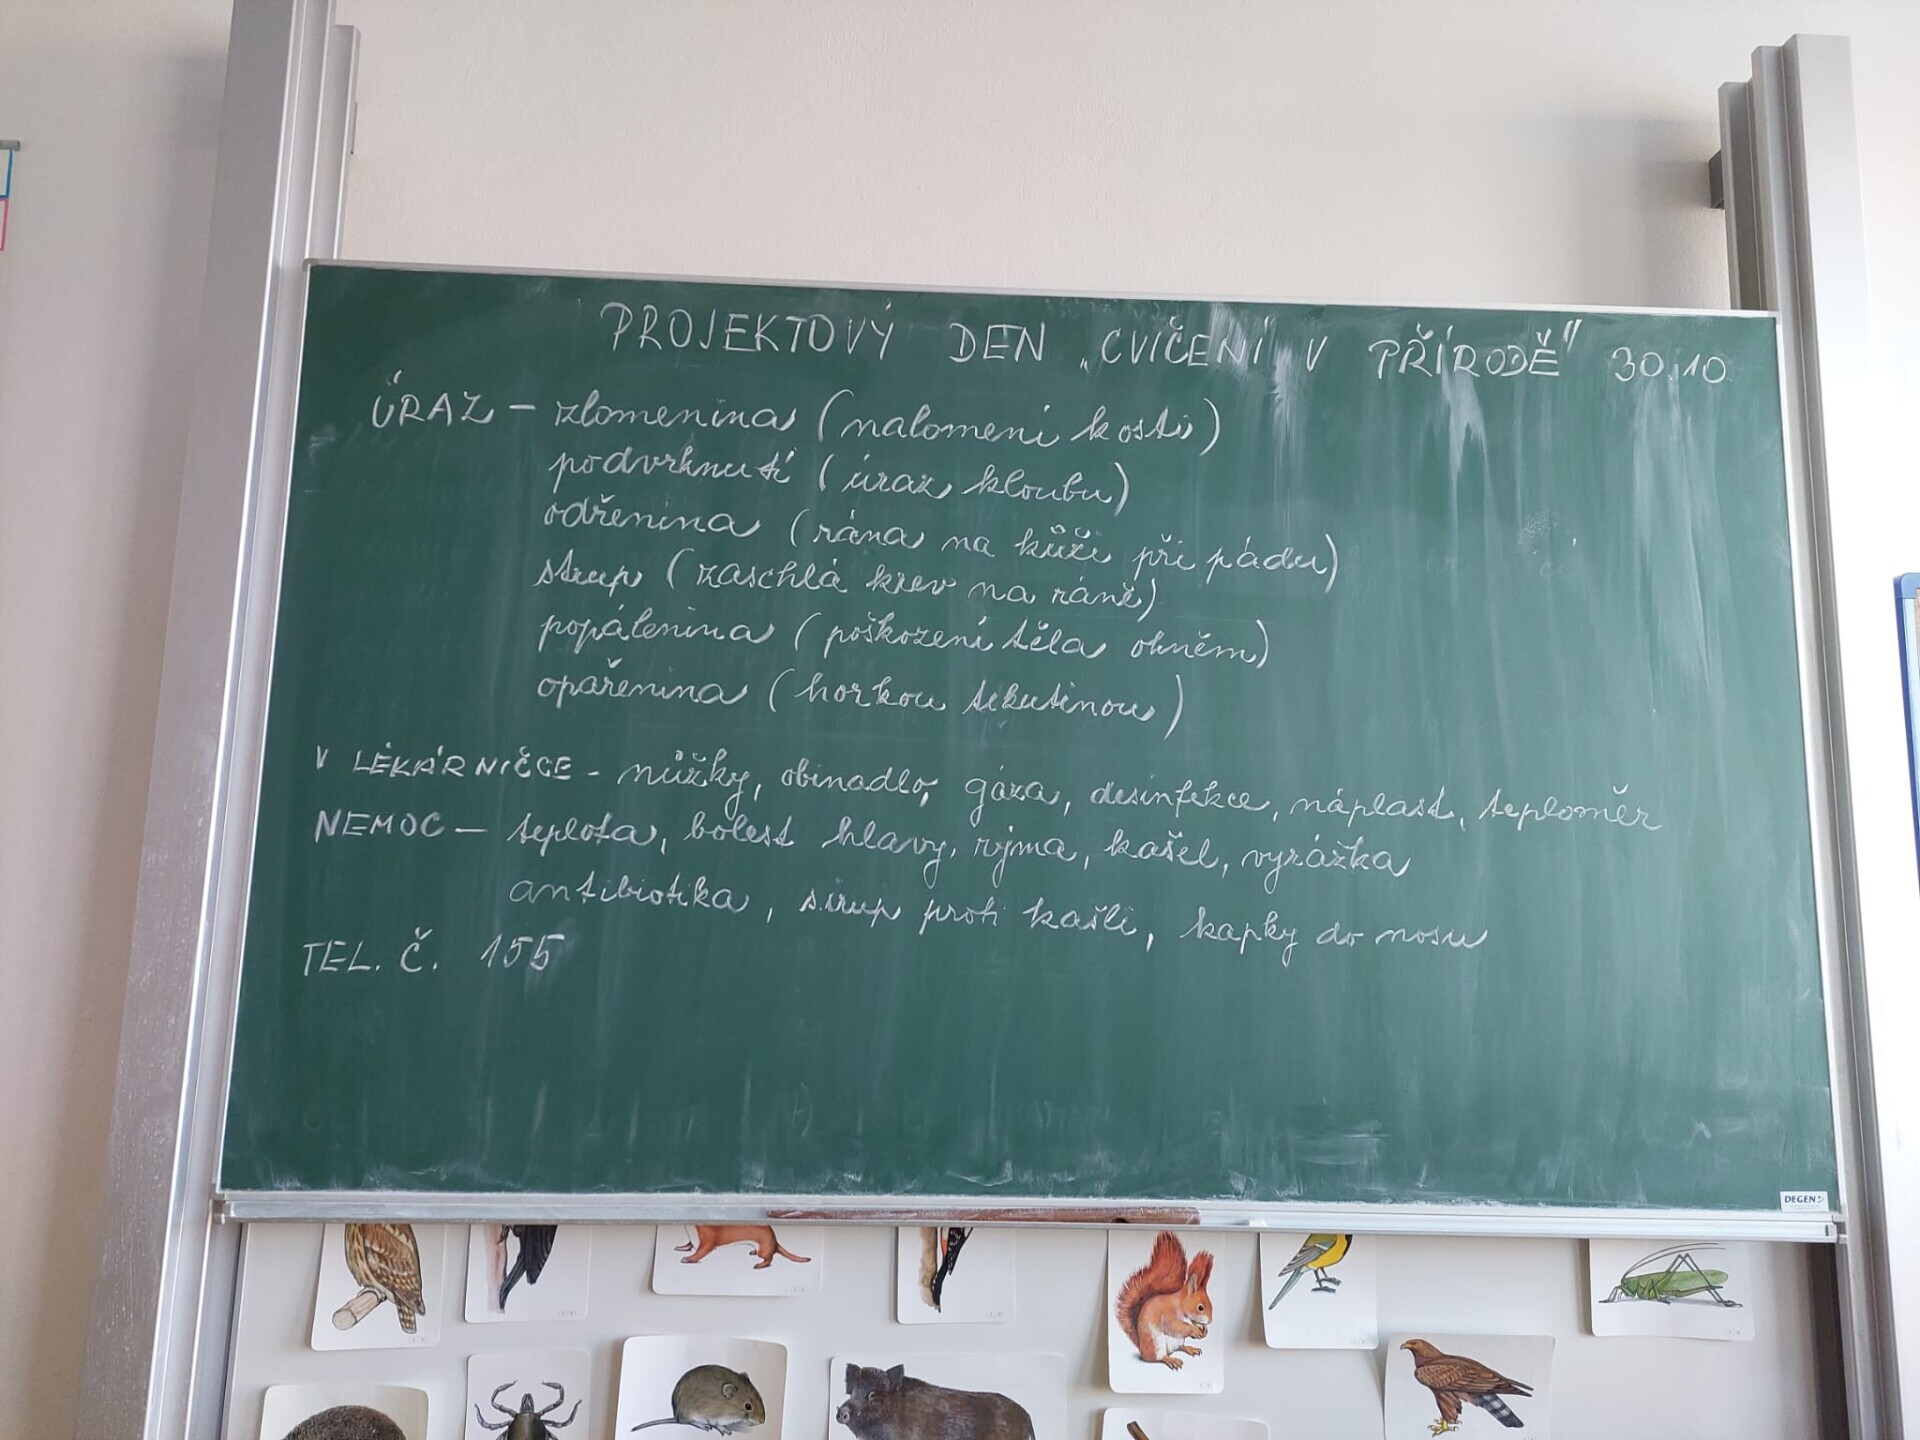 PROJEKTOVÝ DEN „CVIČENÍ V PŘÍRODĚ" 30.10
ÚRAZ – zlomenina (nalomení kosti)
podvrknutí (úraz kloubu)
odřenina (rána na kůži při pádu)
strup (zaschlá krev na ráně)
popálenina (poškození těla ohněm)
opařenina (horkou tekutinou)
V LÉKÁRNIČCE - nůžky, obinadlo, gáza, desinfekce, náplast, teploměr
NEMOC – teplota, bolest hlavy, rýma, kašel, vyrážka
antibiotika, sirup proti kašli, kapky do nosu
TEL. Č. 155
DEGEN